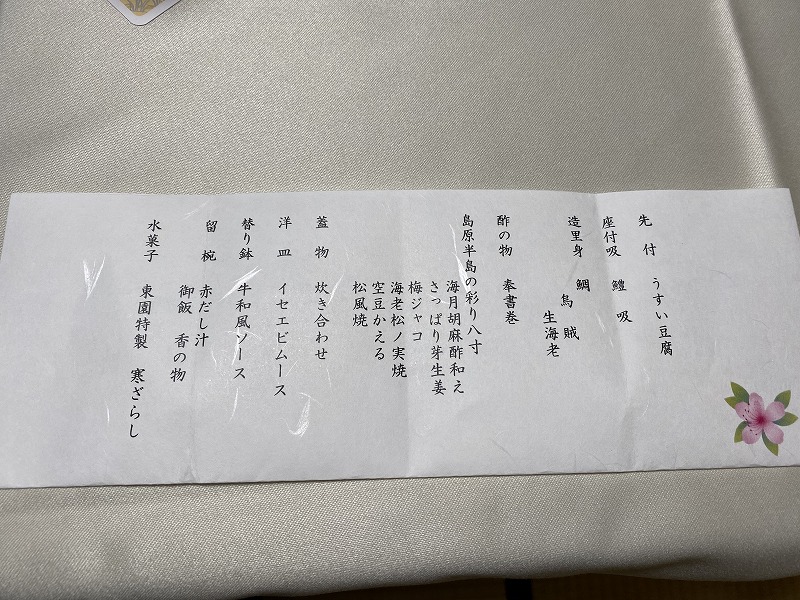 先付 うすい豆腐
座付吸 鱧吸
造里身 鯛
烏賊
生海老
酢の物 奉書巻
島原半島の彩り八寸
海月胡麻酢和え
さっぱり芽生姜
梅ジャコ
海老松ノ実焼
空豆かえる
松風焼
蓋物 炊き合わせ
洋皿 イセエビムース
替り鉢 牛和風ソース
留椀 赤だし汁
御飯 香の物
水菓子 東園特製 寒ざらし